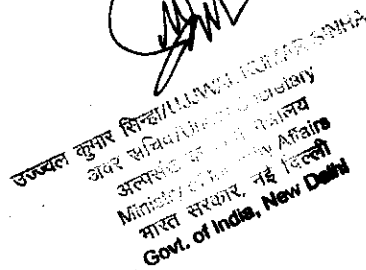 उज्ज्वल कुमार सिन्हा/UJJWAL KUMAR SINHA
अवर सचिव/Under Secretary
अल्पसंख्यक मंत्रालय
Ministry of Affairs
भारत सरकार, नई दिल्ली
Govt. of India, New Delhi